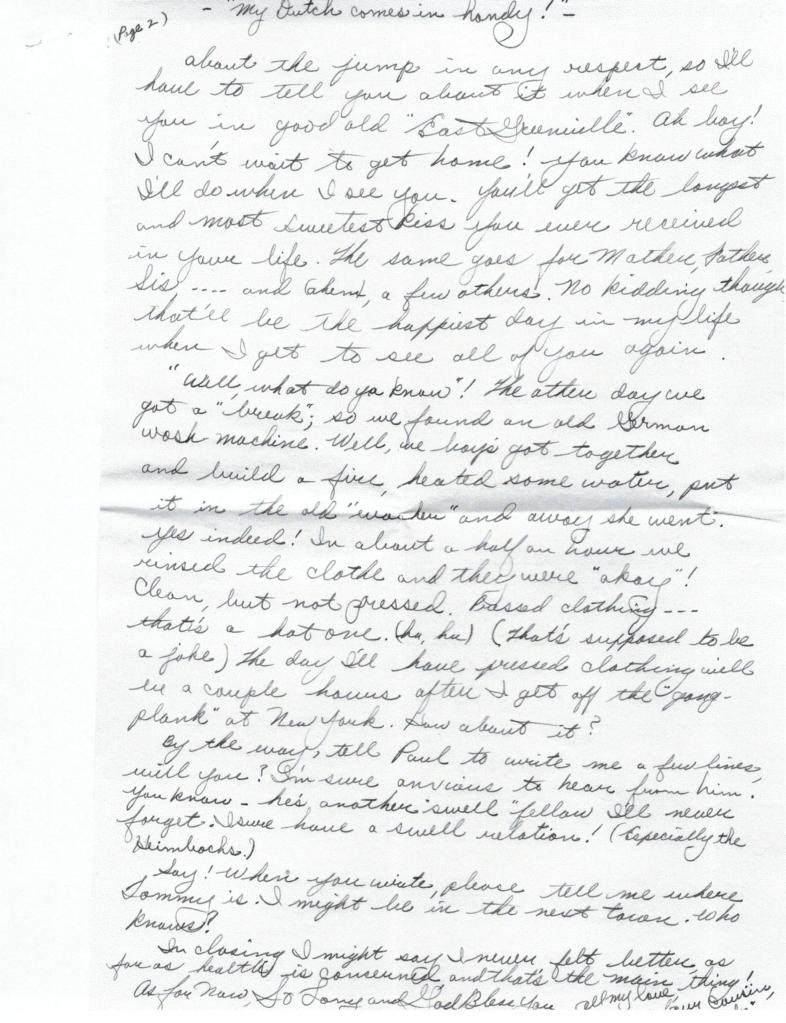 - "My Dutch comes in handy!" -
(Page 2)
about the jump in any respect, so I'll
have to tell you about it when I see
you in good old "East Greenville". Ah boy!
I can't wait to get home! You know what
I'll do when I see you. You'll get the longest
and most sweetest kiss you ever received
in your life. The same goes for Mother, Father,
Sis .... and (ahem), a few others. No kidding though
that'll be the happiest day in my life
when I get to see all of you again.
"Well, what do ya know"! The other day we
got a "break"; so we found an old German
wash machine. Well, we boys got together
and build a fire, heated some water, put
it in the old "washer" and away she went.
Yes indeed! In about a half an hour we
rinsed the clothe and they were "okay"!
Clean, but not pressed. Pressed clothing ---
that's a hot one. (ha, ha) (That's supposed to be
a joke) The day I'll have pressed clothing will
be a couple hours after I get off the "gang-
plank" at New York. How about it?
By the way, tell Paul to write me a few lines,
will you? I'm sure anxious to hear from him.
You know - he's another "swell" fellow I'll never
forget. I sure have a swell relation! (Especially the
Heimbachs.)
Say! When you write, please tell me where
Tommy is. I might be in the next town. Who
knows?
In closing I might say I never felt better as
far as health is concerned and that's the main thing!
As for Now, So Long and God Bless You all my love,
your Cousin,